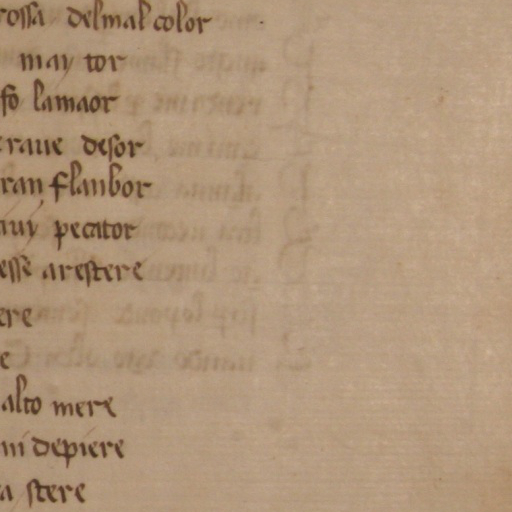 rossa delmal color
may tor
fo lamaor
traue desor
ran flanbor
auy pecator
esse arestere
ere
e
alto mere
ni depiere
a stere